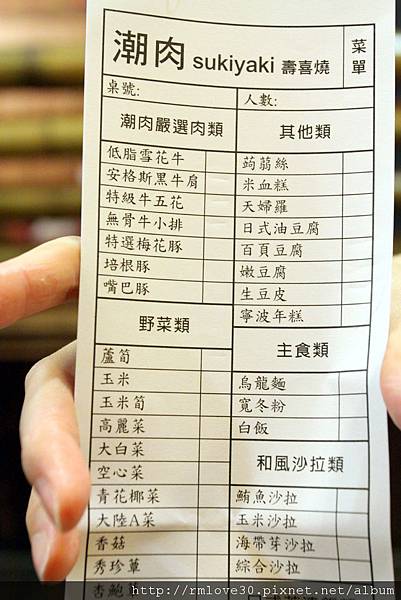 潮肉 sukiyaki 壽喜燒
菜單
桌號:
人數:
潮肉嚴選肉類
低脂雪花牛
安格斯黑牛肩
特級牛五花
無骨牛小排
特選梅花豚
培根豚
嘴巴豚
野菜類
蘆筍
玉米
玉米筍
高麗菜
大白菜
空心菜
青花椰菜
大陸A菜
香菇
秀珍菇
杏鮑菇
其他類
蒟蒻絲
米血糕
天婦羅
日式油豆腐
百頁豆腐
嫩豆腐
生豆皮
寧波年糕
主食類
烏龍麵
寬冬粉
白飯
和風沙拉類
鮪魚沙拉
玉米沙拉
海帶芽沙拉
綜合沙拉
http://rmlove30.pixnet.net/album